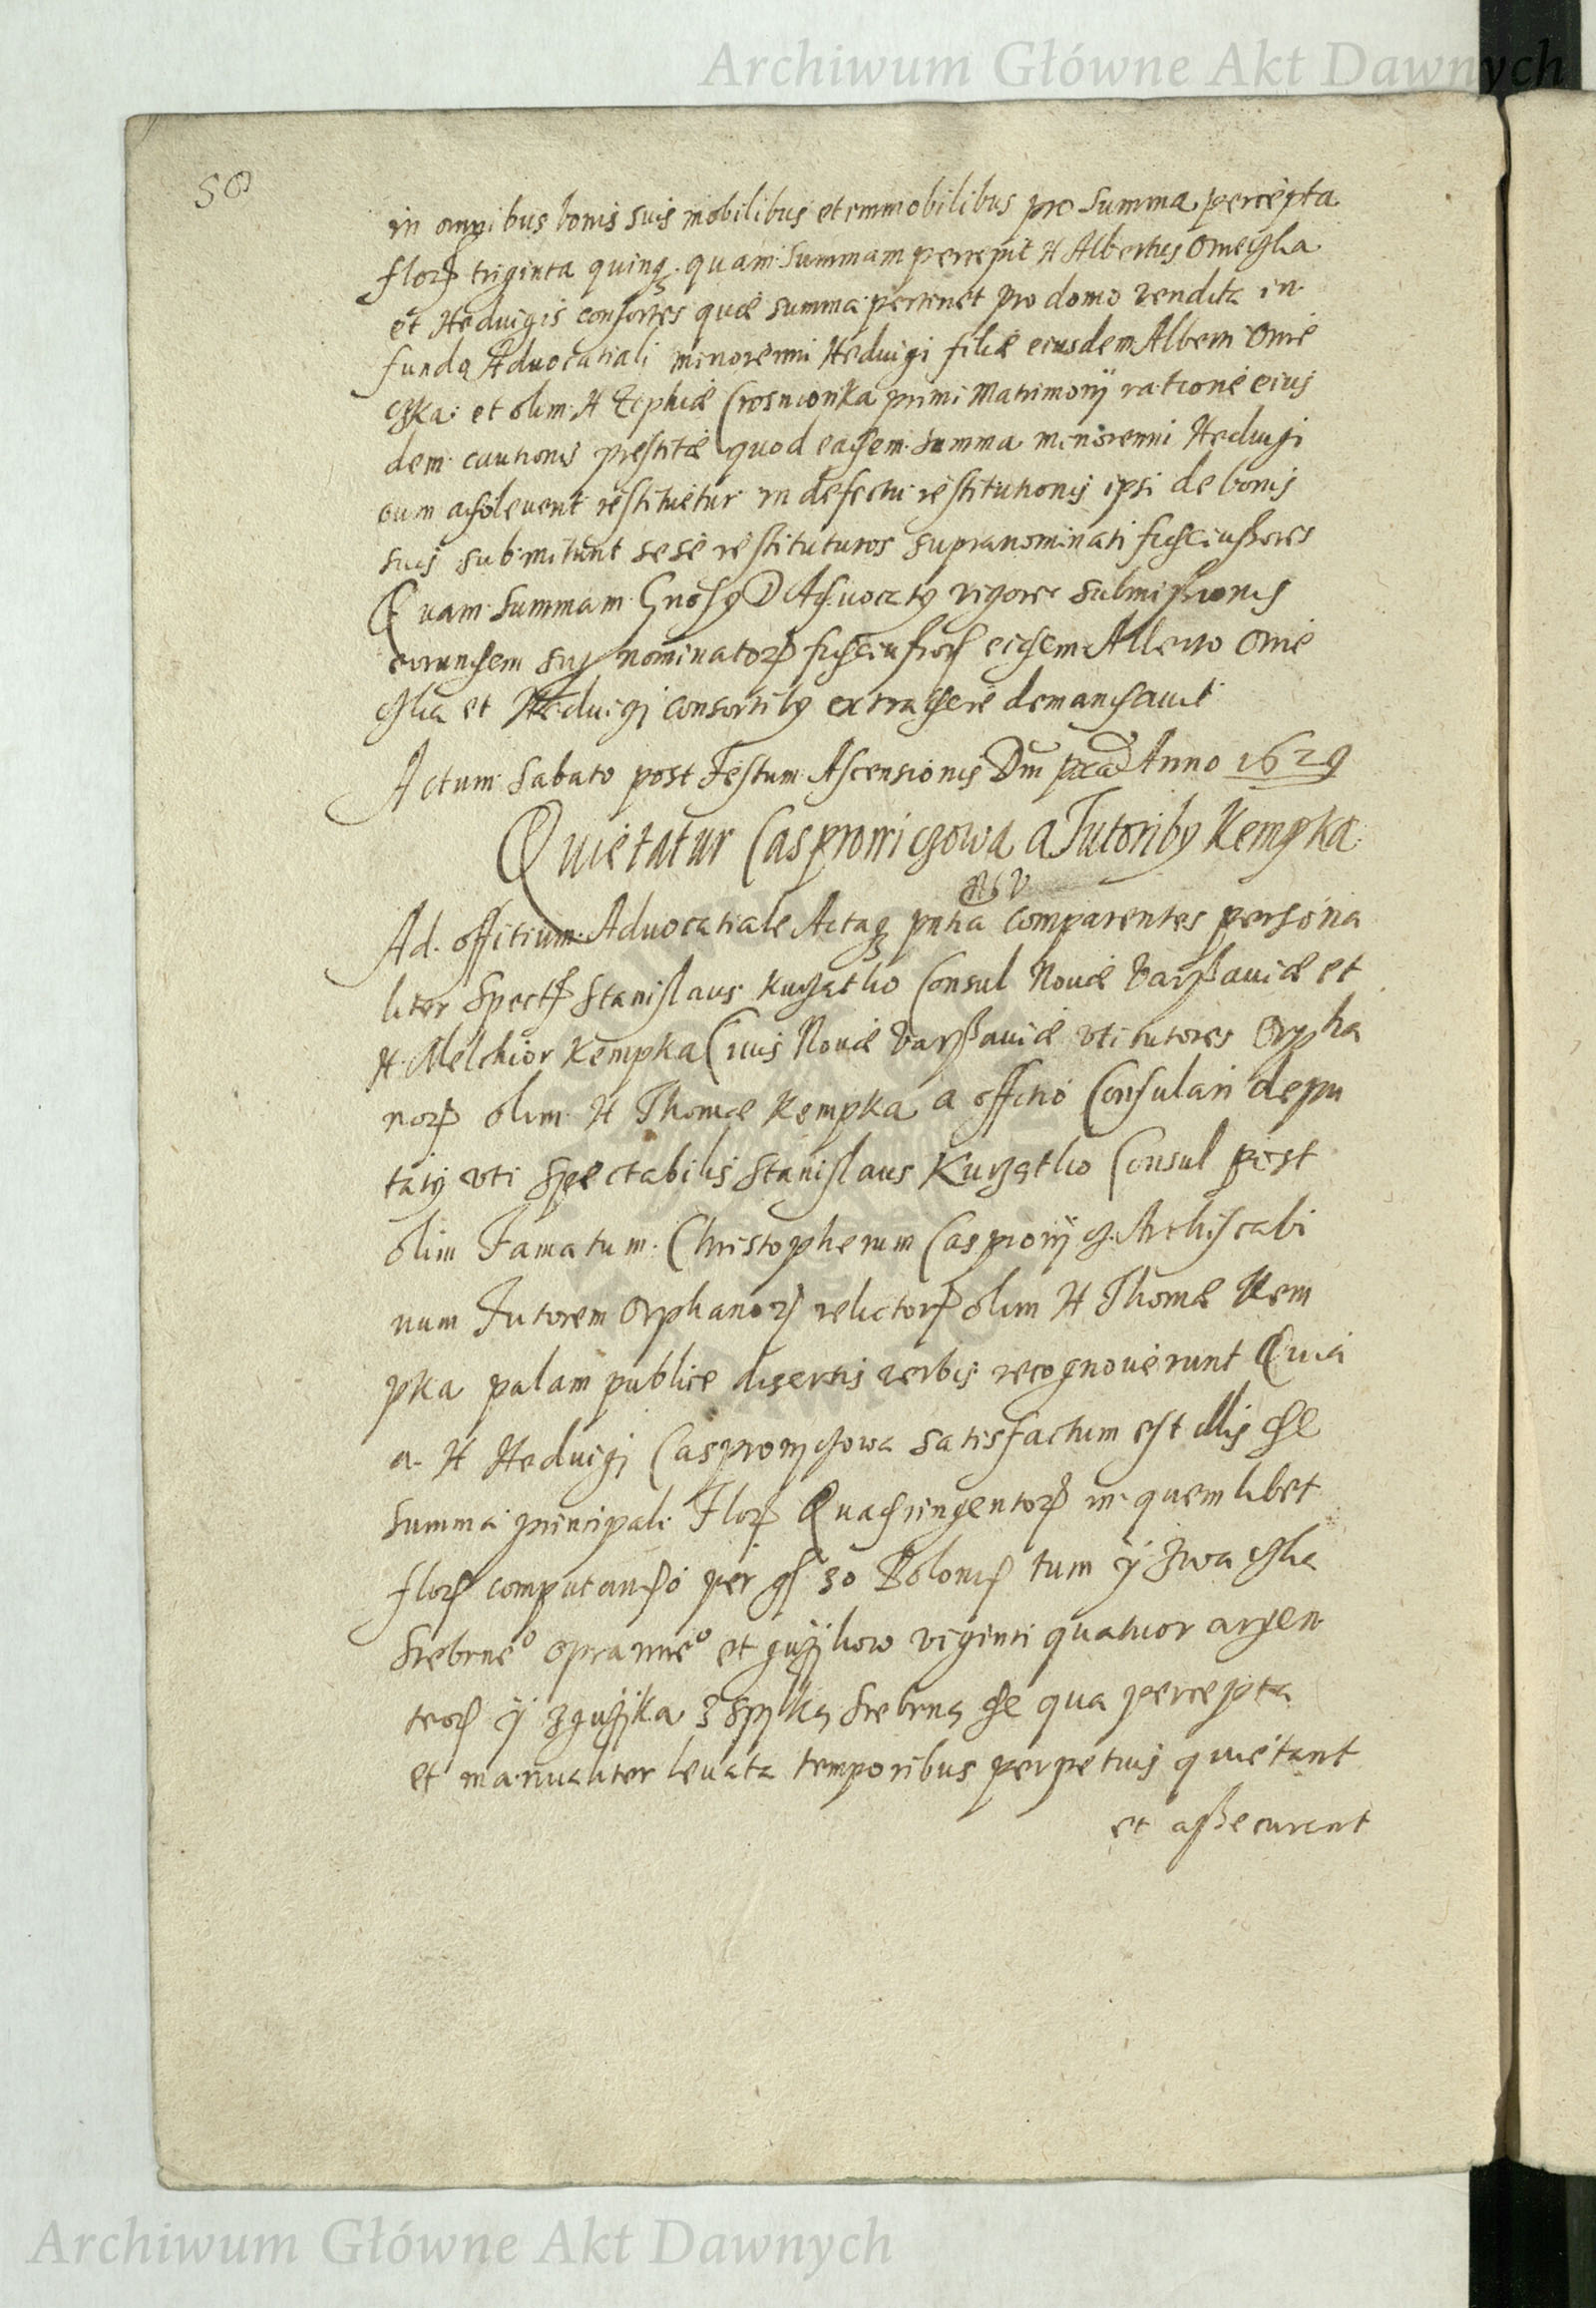 Archiwum Główne Akt Dawnych
58
in omnibus bonis suis mobilibus et immobilibus pro summa percepta
flor triginta quinq quam summam percepit H Albertus Omieczka
et Heduigis consortes quæ summa pertinet pro domo vendita in
fundo Aduocatiali minorenni Heduigi filiæ eiusdem Alberti Omie
czka et olim H Zophiæ Crosnionka primi Matrimonÿ ratione eius
dem cautionis prestitæ quod eadem summa minorenni Heduigi
cum adoleuerit restituetur in defectu restitutionis ipsi de bonis
suis submitunt sese restituturos supranominati fideiussores
Quam summam Gnosus D Aduocatus vigore submissionis
eorundem sup nominator fideiussor eidem Alberto Omie
czka et Heduigi consortibus extradere demandauit
Actum Sabato post Festum Ascensionis Dni Anno 1629
Quietatur Casprowiczowa a Tutoribus Kempka
Ad officium Aduocatiale Actaq pntia comparentes persona
liter Spect Stanislaus Kurzatko Consul Nouæ Varssauiæ et
H Melchior Kempka Ciuis Nouæ Varssauiæ vti tutores Orpha
nor olim H Thomæ Kempka a officio Consulari depu
tati vti Spectabilis Stanislaus Kurzatko Consul post
olim Famatum Christopherum Casprowicz Archiscabi
num Tutorem Orphanor relictor olim H Thomæ Kem
pka palam publice disertis verbis recognouerunt Quia
a H Heduigi Casprowiczowa satisfactum est illis de
summa principali Flor Quadringentor in quemlibet
flor computando per gr 30 Polonic tum ÿ
srebrne^o oprawne^o et guzikow viginti quatuor argen
teor ÿ z guzika srebrną de qua percepta
et manualiter leuata temporibus perpetuis quietant
et assecurant
Archiwum Główne Akt Dawnych